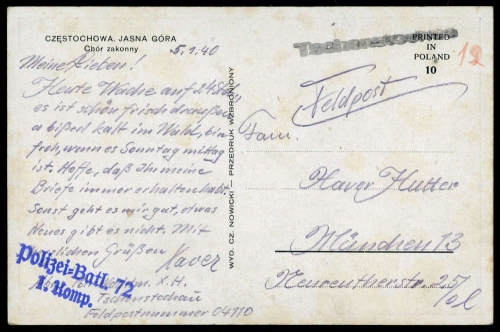 CZĘSTOCHOWA. JASNA GÓRA
Chór zakonny
5.1.40
Meine Lieben!
Heute Wache auf 24 Std.,
es ist schön frisch draußen
a bißerl kalt im Wald, bin
froh, wenn es Sonntag mittag
ist. Hoffe, daß Ihr meine
Briefe immer erhalten habt.
Sonst geht es mir gut, etwas
Neues gibt es nicht. Mit
herzlichen Grüßen
Xaver
Polizei-Batl. 72
1. Komp.
X.H.
Tschenstochau
Feldpostnummer 04110
WYD. CZ. NOWICKI — PRZEDRUK WZBRONIONY
Tschenstochau
PRINTED
IN
POLAND
10
12
Feldpost
Fam.
Xaver Hutter
München 13
Neureutherstr. 25/